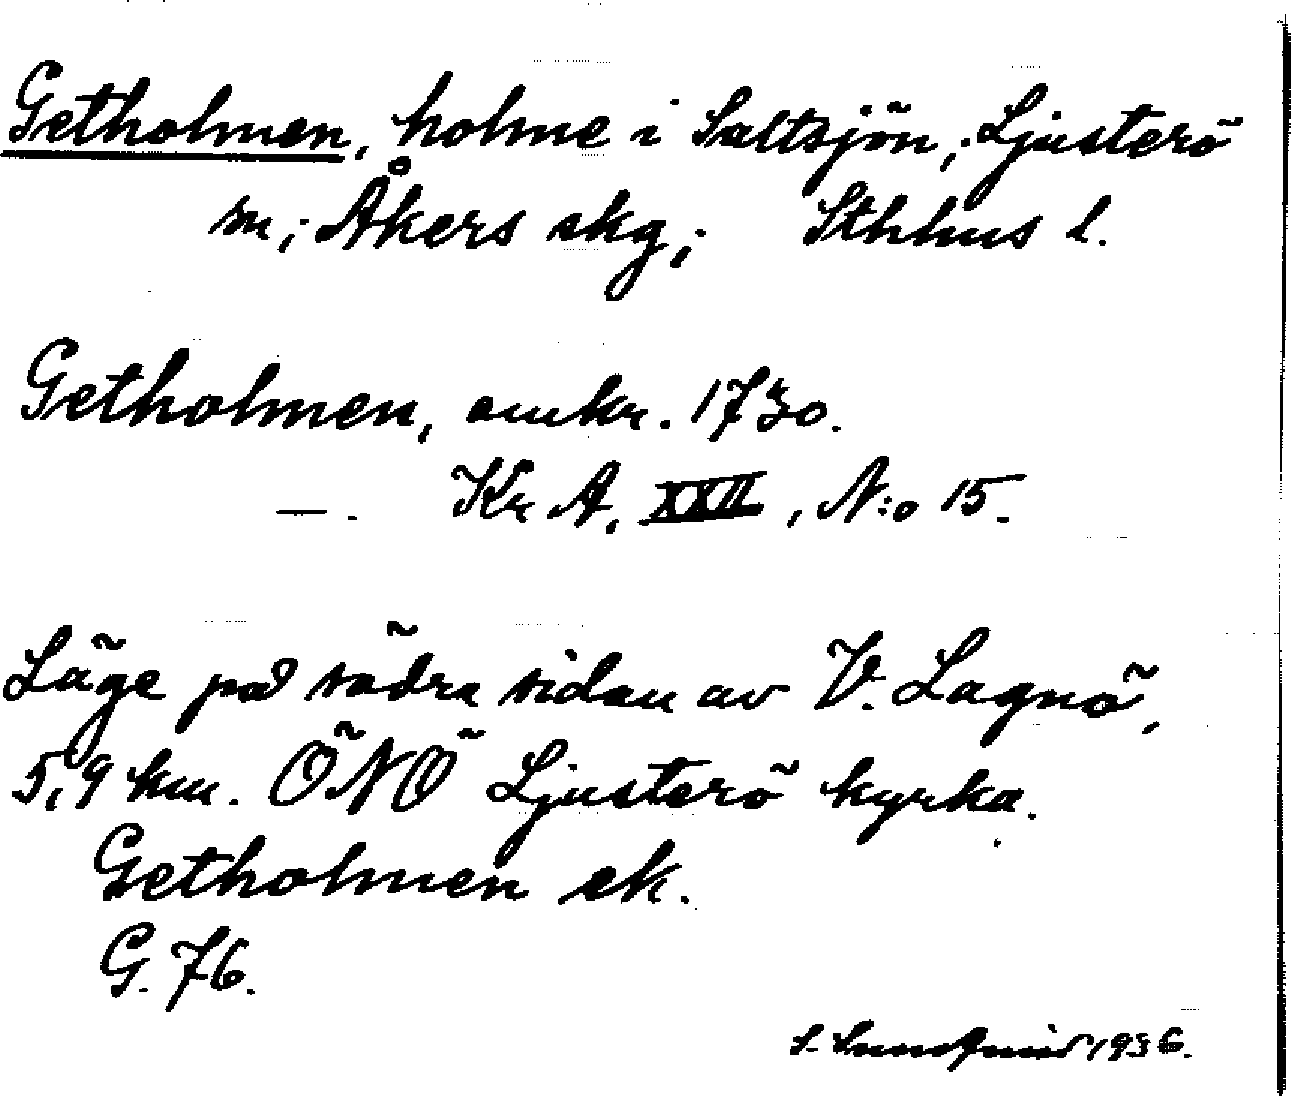 Getholmen, holme i Saltsjön; Ljusterö
sn; Åkers skg; Sthhus l.
Getholmen, omkr. 1730.
—. Kr A, XXII, N:o 15.
Läge på södra sidan av V. Lagnö,
5,9 km. ÖNÖ Ljusterö kyrka.
Getholmen ek.
G. 76.
S. 1936.